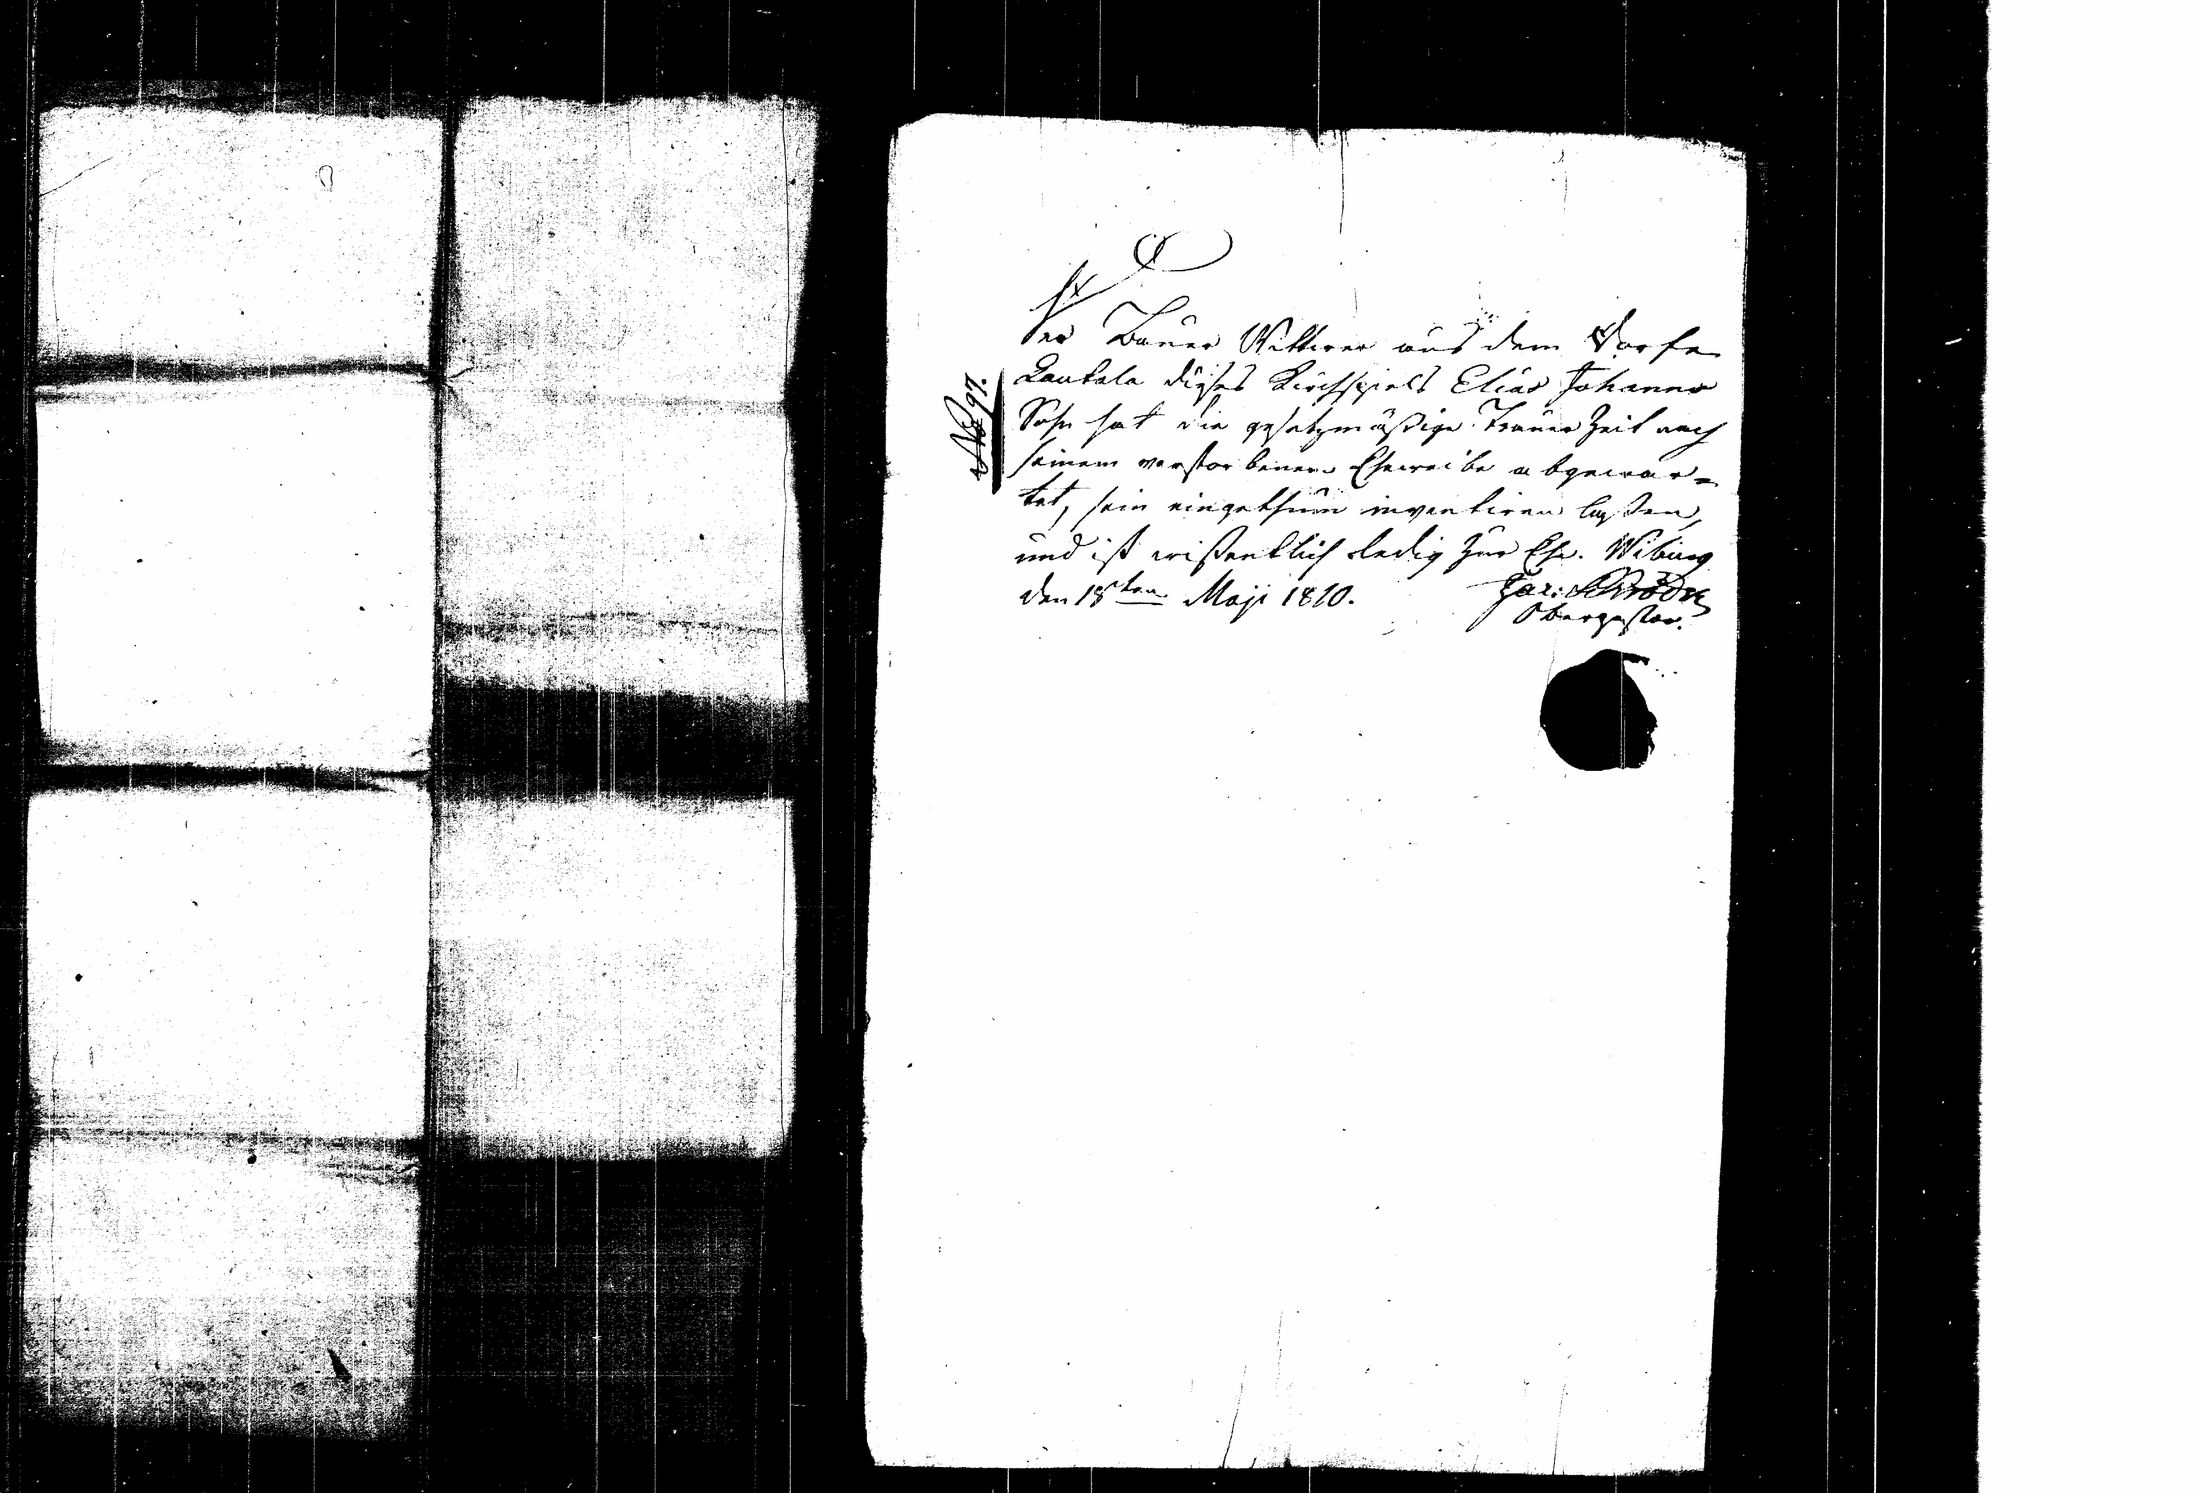 No 97.
Der Bauer Wittwer aus dem Dorfe
Lankala dieses Kirchspiels Elias Johanns
Sohn hat die gesetzmäßige Trauer Zeit nach
seinem verstorbenen Eheweibe abgewar=
tet, sein eingethum inventiren laßen,
und ist wißentlich ledig zur Ehe. Wiburg
den 18ten Maji 1810.
Schröder
Oberpastor.